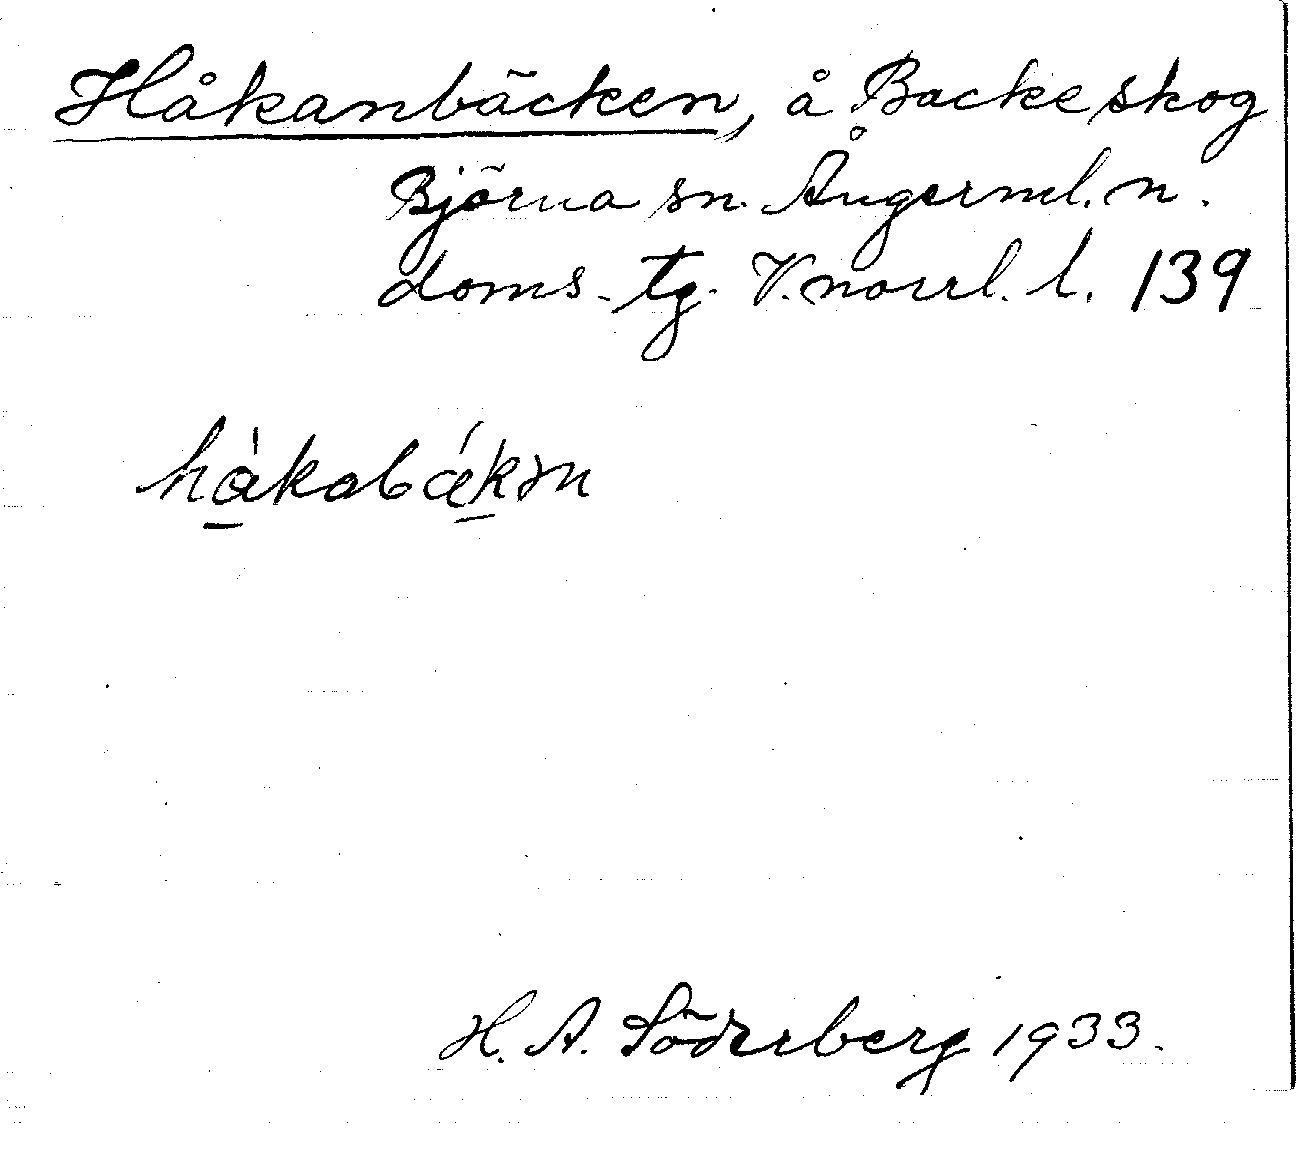 Håkanbäcken, å Backe skog
Björna sn. Ångerml. n.
doms. tg. V. norrl. l. 139
hàkabákɘn
H. A. Söderberg 1933.